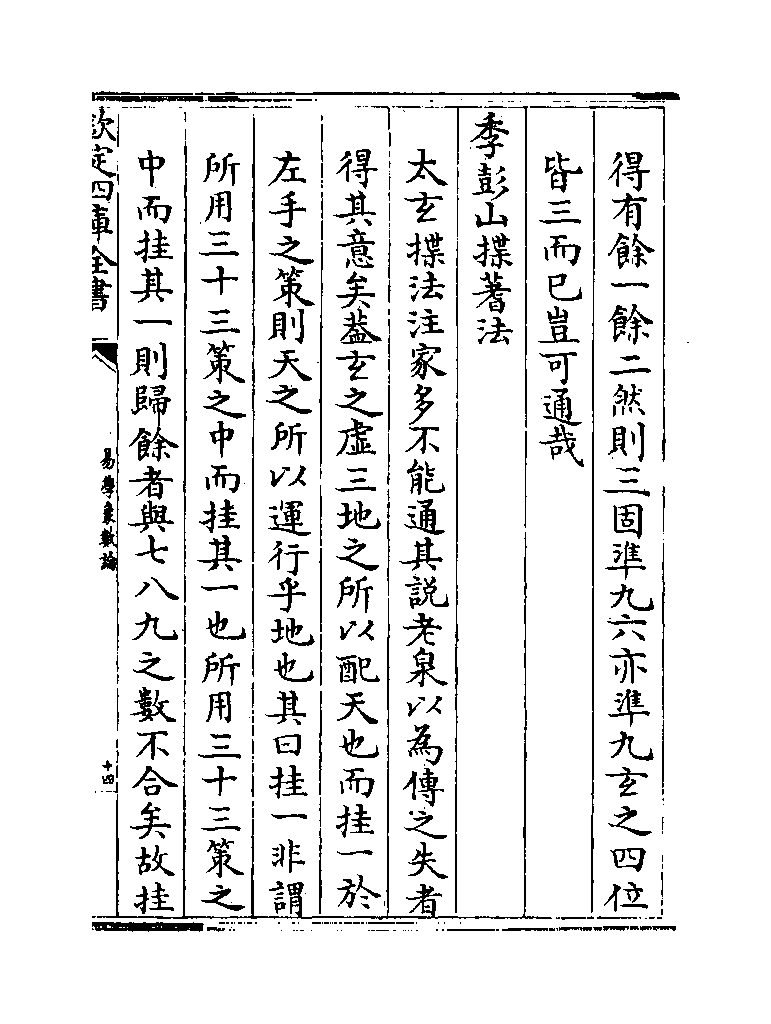 得有餘一餘二然則三固準九六亦準九玄之四位
皆三而已豈可通哉
季彭山揲蓍法
太玄揲法注家多不能通其説老泉以為傳之失者
得其意矣葢玄之虛三地之所以配天也而挂一於
左手之策則天之所以運行乎地也其曰挂一非謂
所用三十三策之中而挂其一也所用三十三策之
中而挂其一則歸餘者與七八九之數不合矣故挂
欽定四庫全書
易學象數論
十四